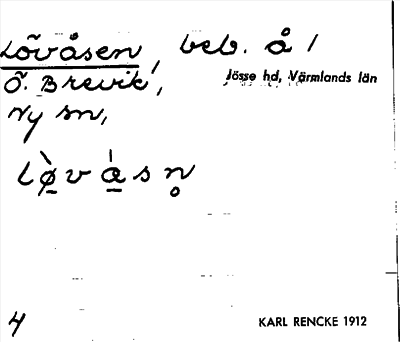 Lövåsen, beb. å /
Jösse hd, Värmlands län
Ö. Brevik,
Ny sn,
lø̠̀v a̠̍ s n̥
4
KARL RENCKE 1912